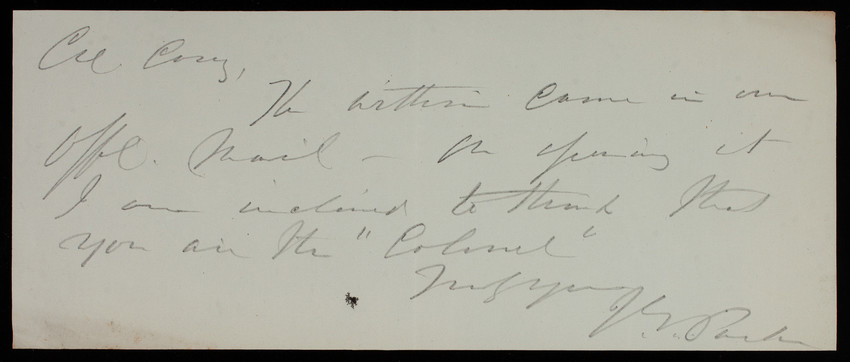 Col. Casey,
The within came in our
Offl. Mail – On opening it
I am inclined to think that
you are the "Colonel"
Truly yours
J. G. Parke